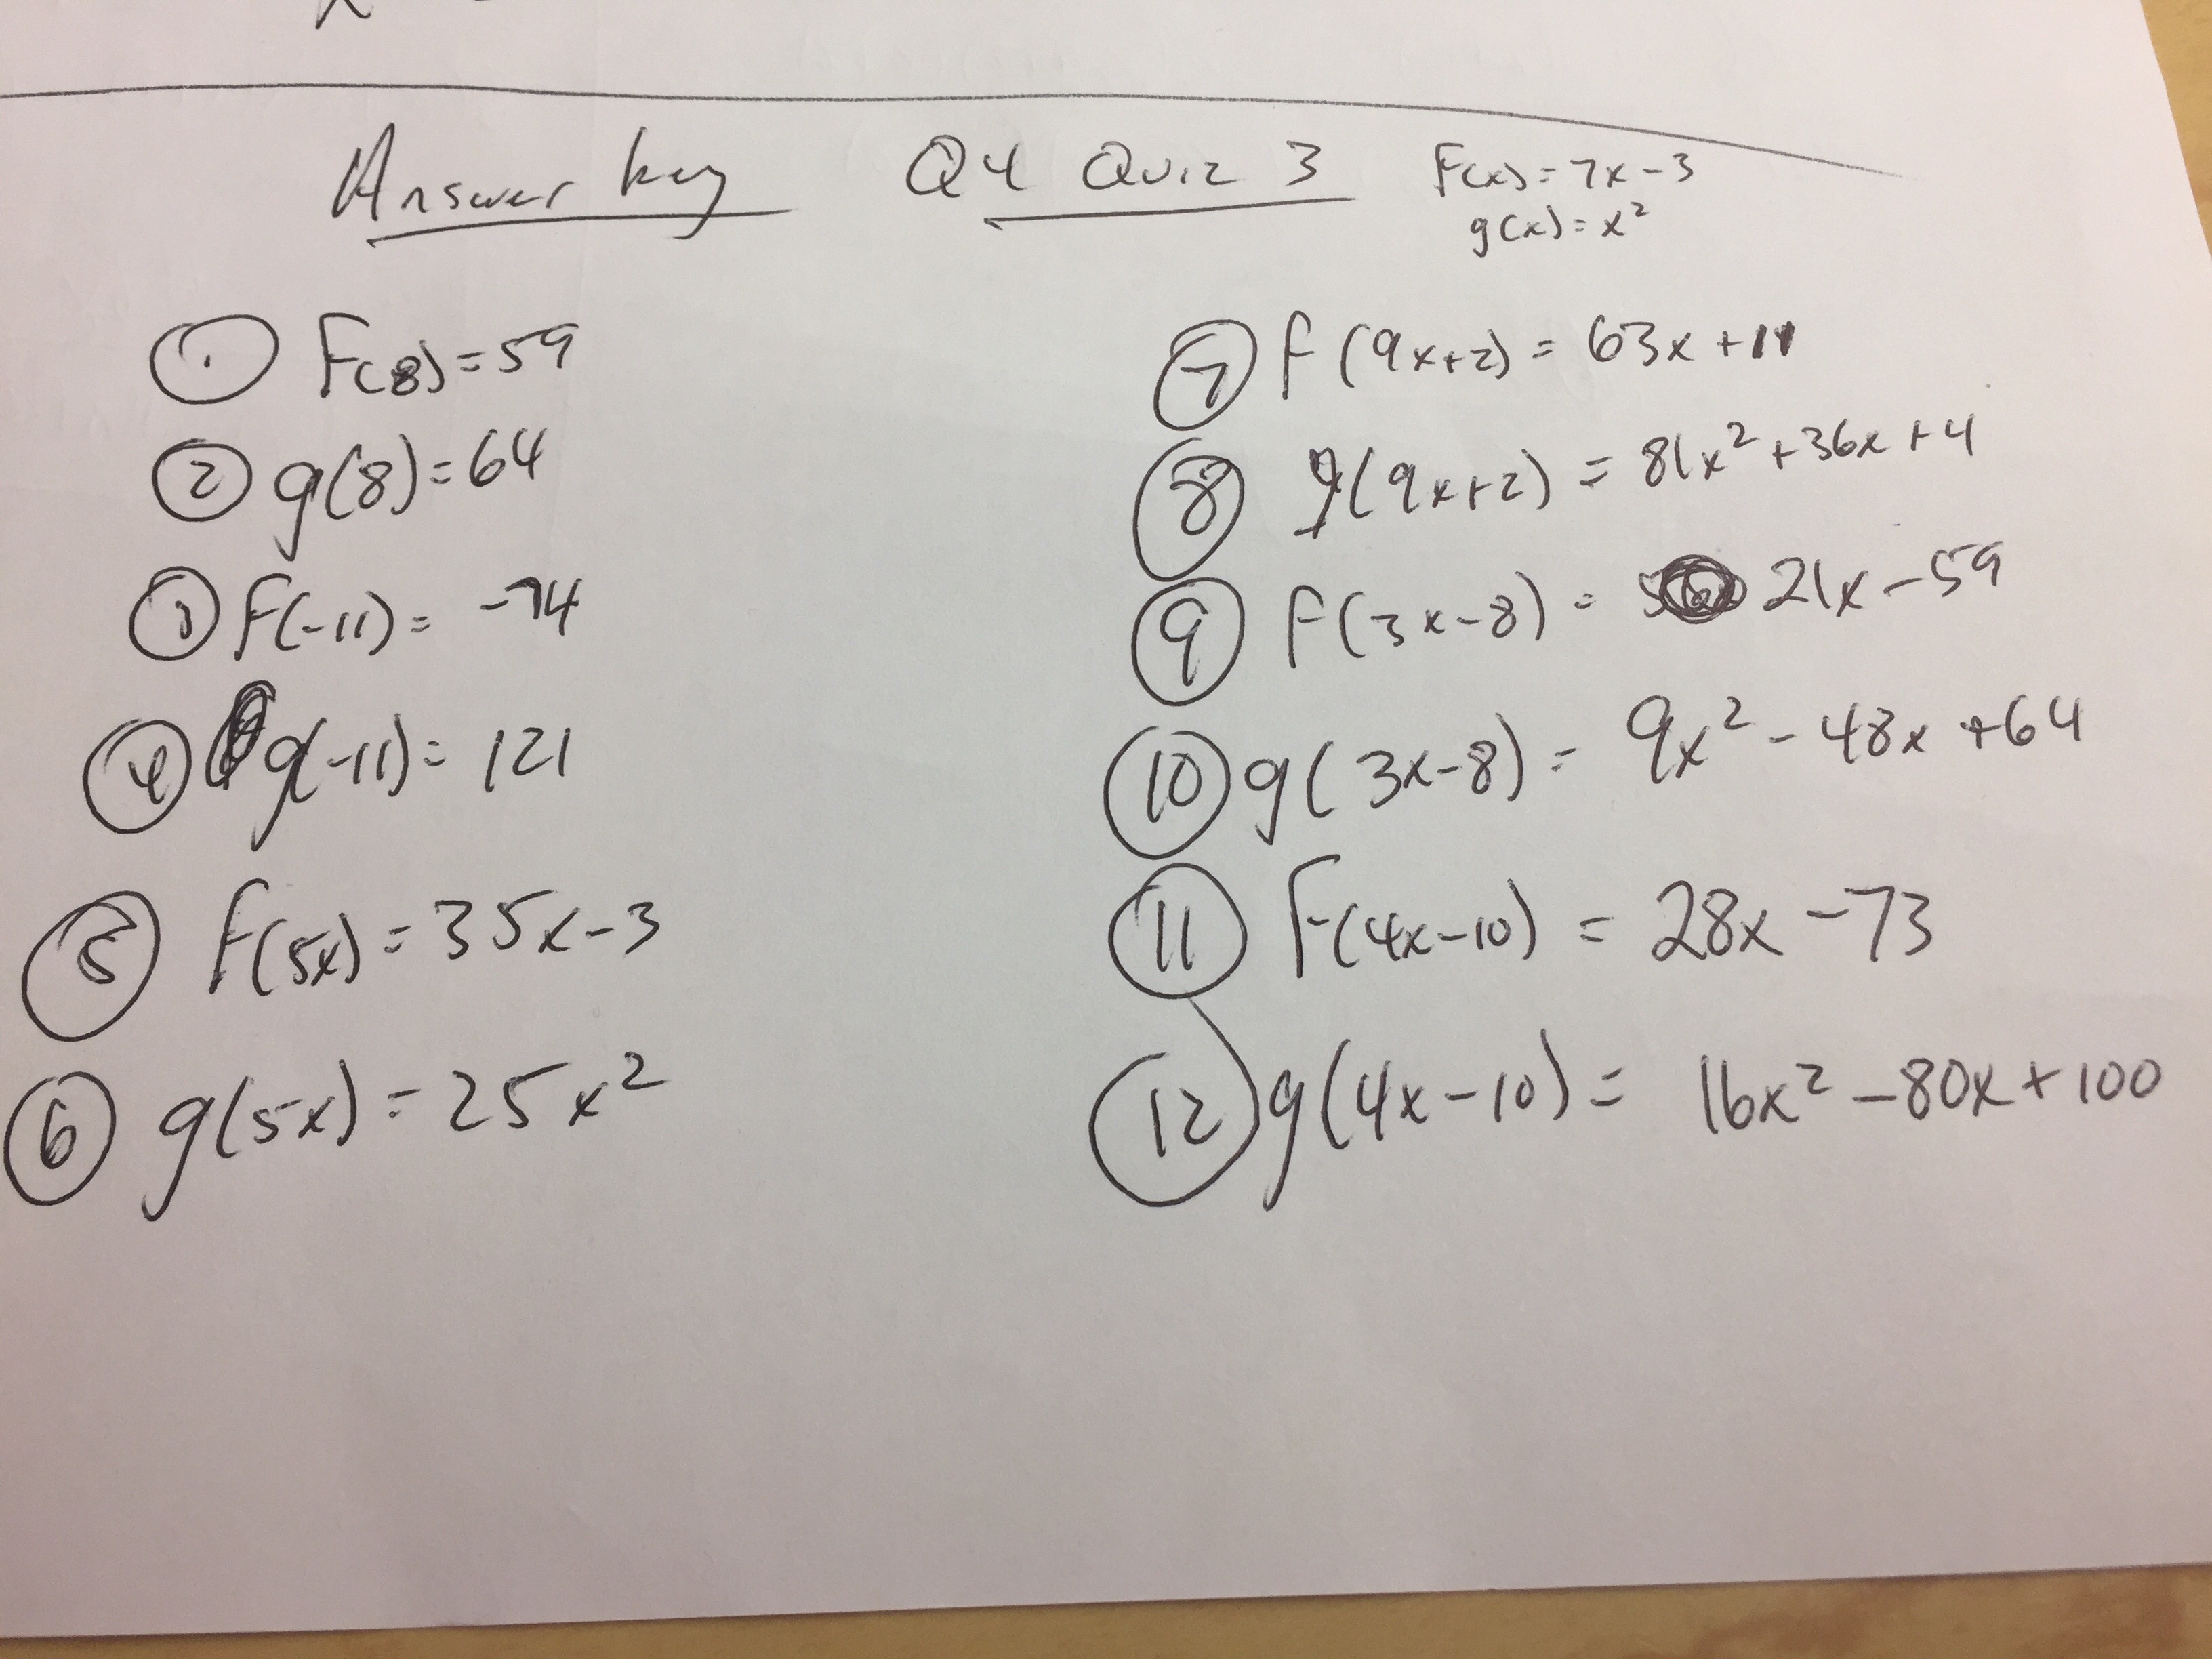 Answer key Q4 Quiz 3 F(x)=7x-3
g(x)=x²
① F(8)=59
② g(8)=64
③ F(-11)= -74
④ g(-11)= 121
⑤ F(5x)=35x-3
⑥ g(5x)=25x²
⑦ F(9x+2)=63x+11
⑧ g(9x+2)=81x²+36x+4
⑨ F(3x-8)= 21x-59
⑩ g(3x-8)=9x²-48x+64
⑪ F(4x-10)=28x-73
⑫ g(4x-10)= 16x²-80x+100